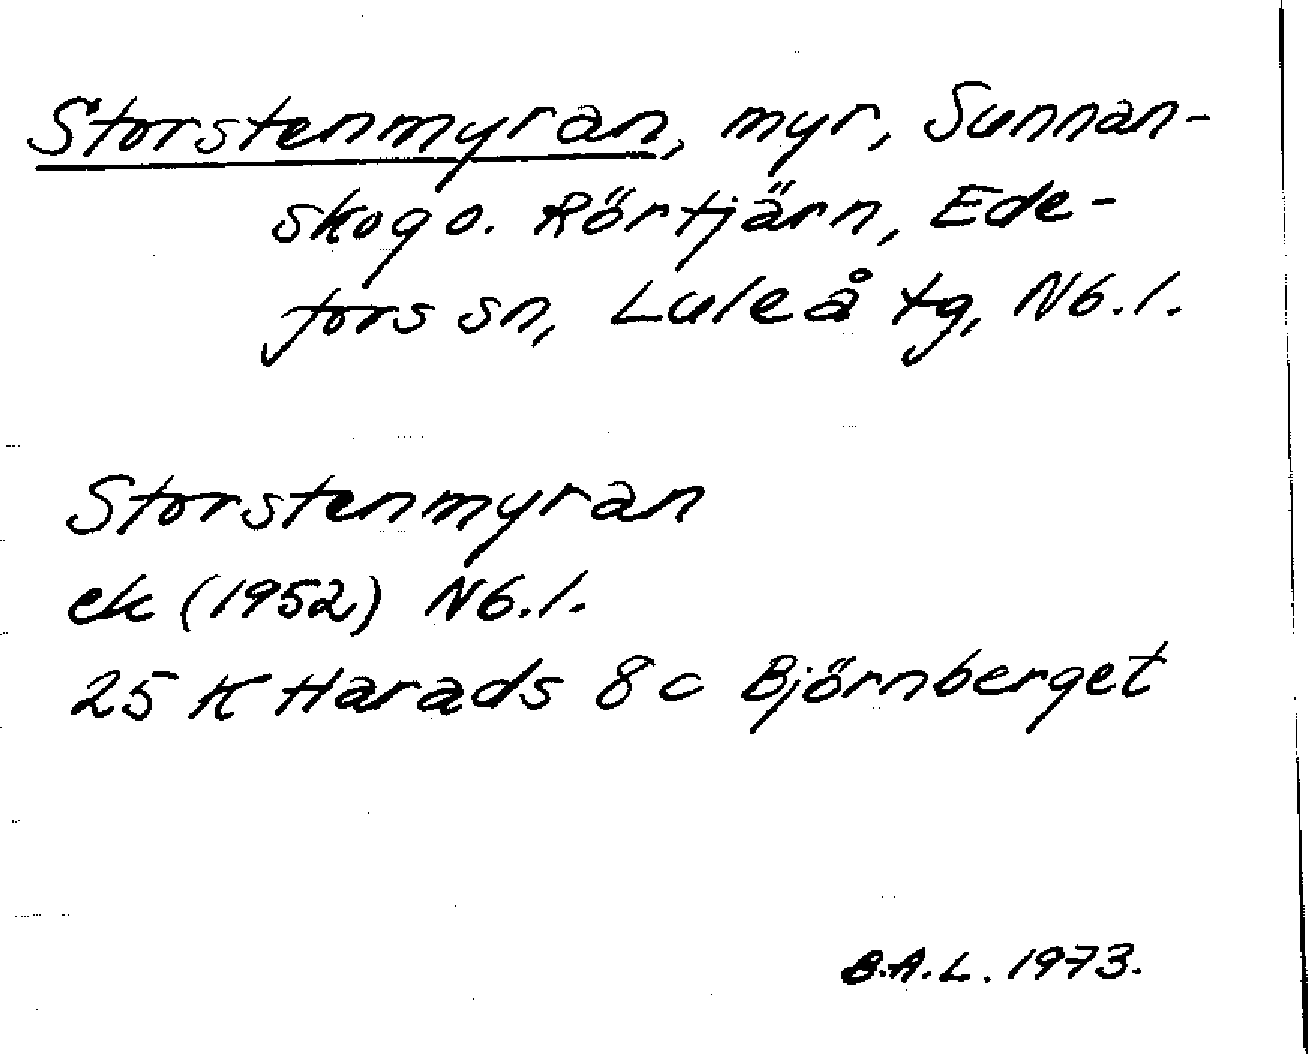 Storstenmyran, myr, Sunnan-
skog o. Rörtjärn, Ede-
fors sn, Luleå tg, Nb. l.
Storstenmyran
ek (1952) Nb. l.
25 K Harads 8 c Björnberget
B.A.L. 1973.